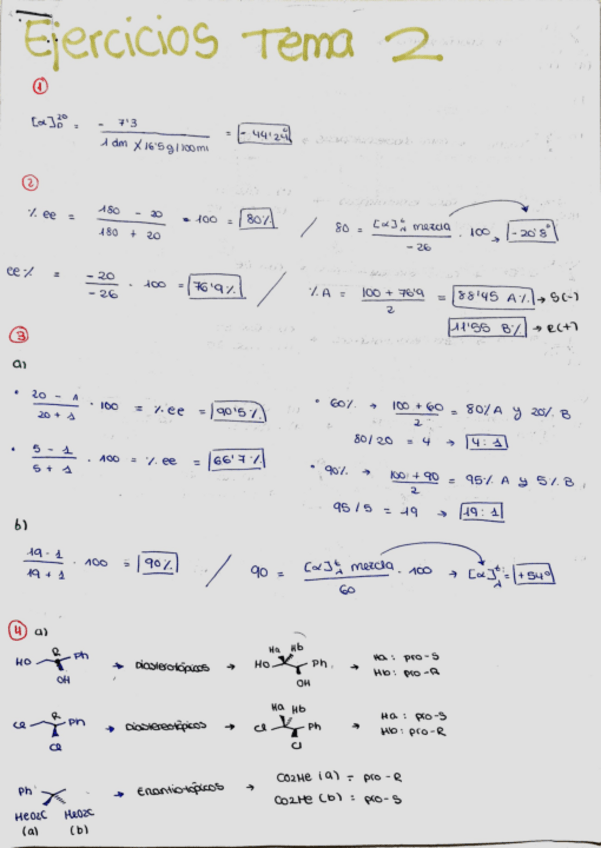 Ejercicios Tema 2
1
[α]D20 = - 7'3 / 1 dm x 16'5 g/100ml = - 44'24°
2
% ee = 180 - 20 / 180 + 20 · 100 = 80% / 80 = [α]λt mezcla / -26 · 100 → - 20'8°
ee% = -20 / -26 · 100 = 76'9% / % A = 100 + 76'9 / 2 = 88'45 A% → S(-)
11'55 B% → R(+)
3
a)
· 20 - 1 / 20 + 1 · 100 = % ee = 90'5%
· 5 - 1 / 5 + 1 · 100 = % ee = 66'7%
· 60% → 100 + 60 / 2 = 80% A y 20% B
80/20 = 4 → 4:1
· 90% → 100 + 90 / 2 = 95% A y 5% B
95/5 = 19 → 19:1
b)
19 - 1 / 19 + 1 · 100 = 90% / 90 = [α]λt mezcla / 60 · 100 → [α]λt = +54°
4 a)
HO R Ph OH → Diasterotópicos → Ha Hb HO Ph OH → Ha: pro-S
Hb: pro-R
Cl R Ph Cl → Diastereotópicos → Ha Hb Cl Ph Cl → Ha: pro-S
Hb: pro-R
Ph MeO2C MeO2C → Enantiotópicos → CO2Me (a) = pro-R
CO2Me (b) = pro-S
(a) (b)